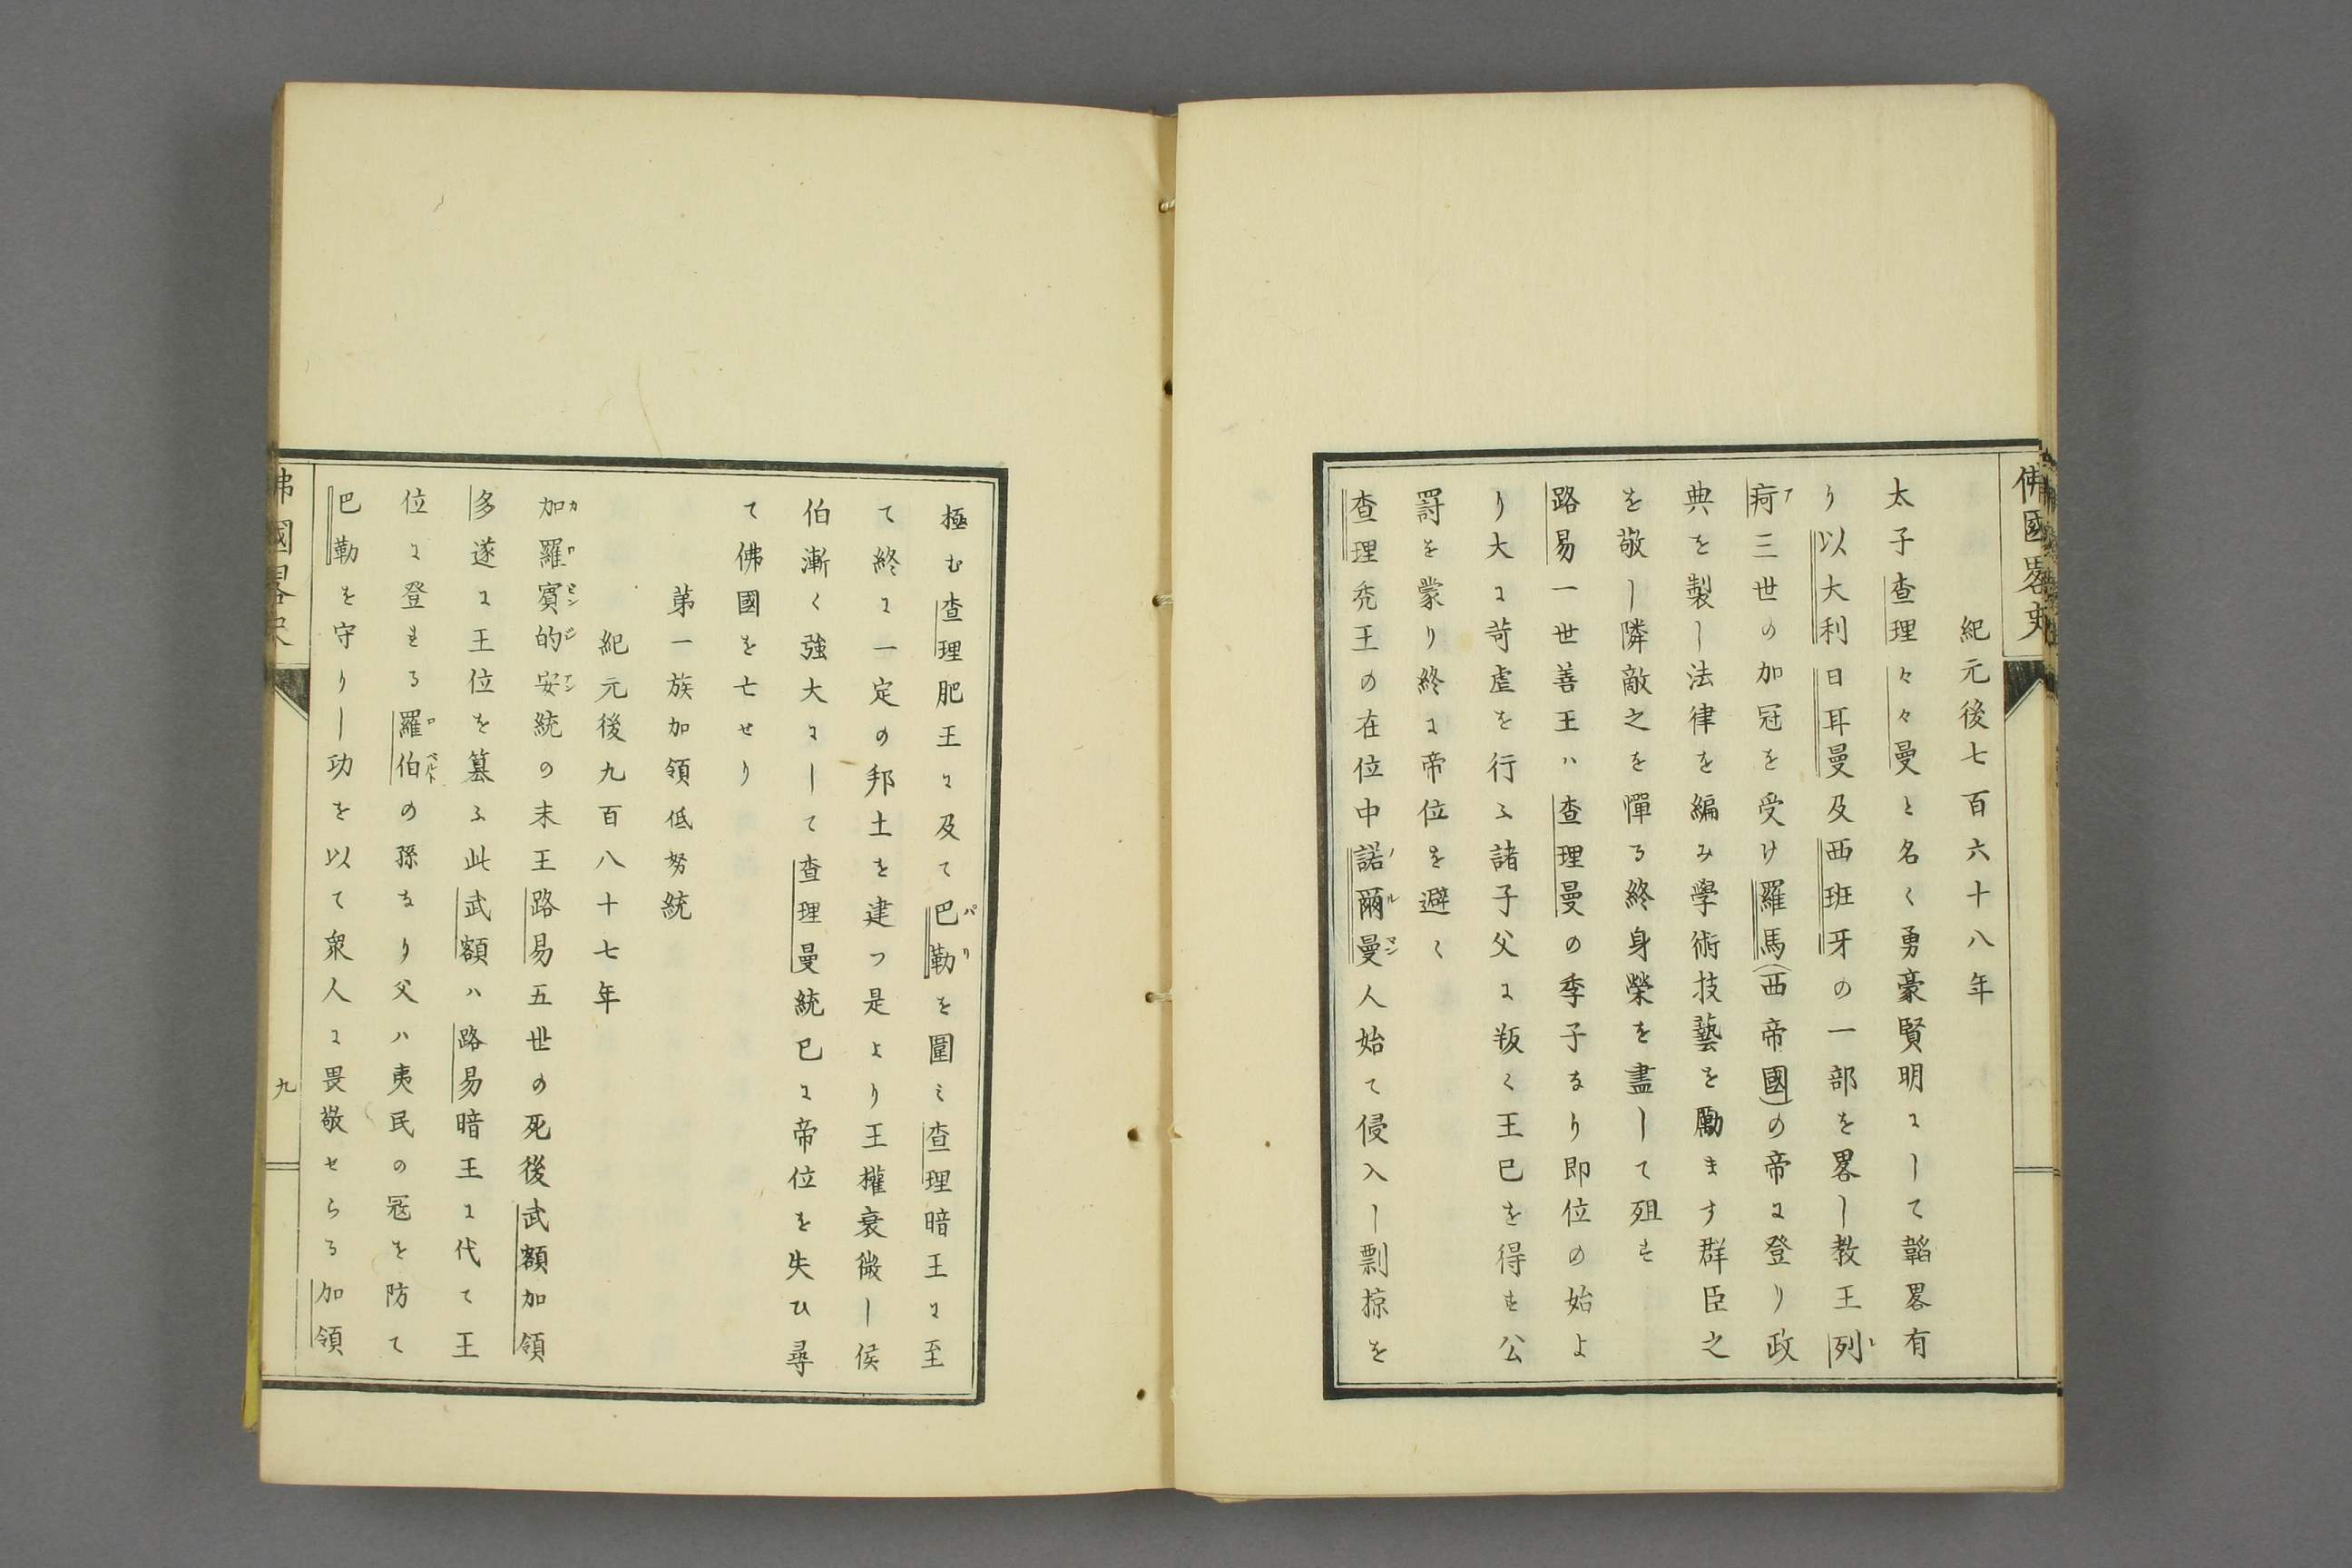 佛國畧史
紀元後七百六十八年
太子査理々々曼と名く勇豪賢明にして韜畧有
り以大利日耳曼及西班牙の一部を畧し教王列
疴三世の加冠を受け羅馬(西帝國)の帝に登り政
典を製し法律を編み學術技藝を勵ます群臣之
を敬し隣敵之を憚る終身榮を盡して殂す
路易一世善王ハ査理曼の季子なり即位の始よ
り大に苛虐を行ふ諸子父に叛く王已を得す公
罸を蒙り終に帝位を避く
査理禿王の在位中諾爾曼人始て侵入し剽掠を
極む査理肥王に及て巴勒を圍ミ査理暗王に至
て終に一定の邦土を建つ是より王權衰微し侯
伯漸く強大にして査理曼統已に帝位を失ひ尋
て佛國を亡せり
第一族加領低努統
紀元後九百八十七年
加羅賓的安統の末王路易五世の死後武額加領
多遂に王位を簒ふ此武額ハ路易暗王に代て王
位に登せる羅伯の孫なり父ハ夷民の冦を防て
巴勒を守りし功を以て衆人に畏敬せらる加領
佛國畧史
九